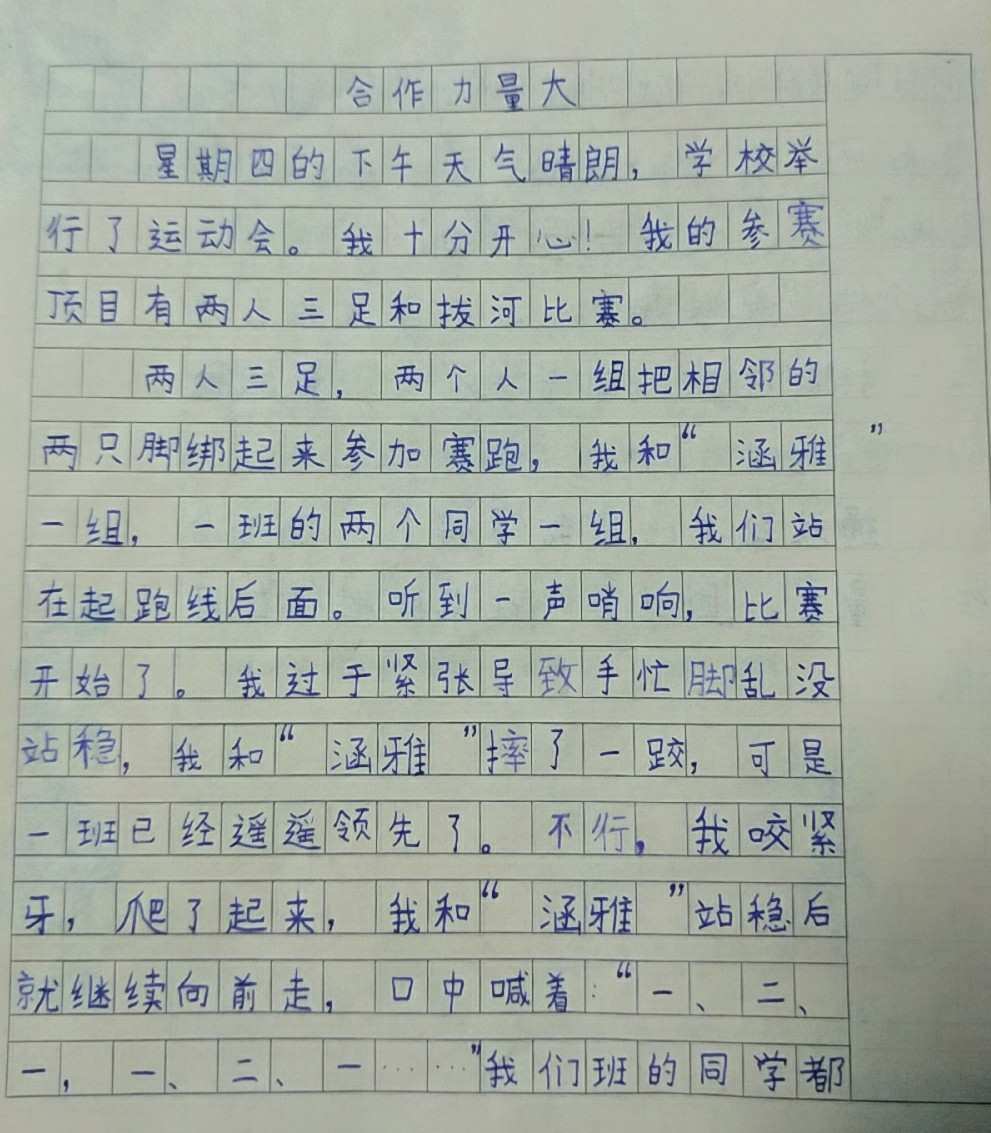 合作力量大
星期四的下午天气晴朗，学校举
行了运动会。我十分开心！我的参赛
项目有两人三足和拔河比赛。
两人三足，两个人一组把相邻的
两只脚绑起来参加赛跑，我和“涵雅”
一组，一班的两个同学一组，我们站
在起跑线后面。听到一声哨响，比赛
开始了。我过于紧张导致手忙脚乱没
站稳，我和“涵雅”摔了一跤，可是
一班已经遥遥领先了。不行，我咬紧
牙，爬了起来，我和“涵雅”站稳后
就继续向前走，口中喊着：“一、二、
一，一、二、一……”我们班的同学都